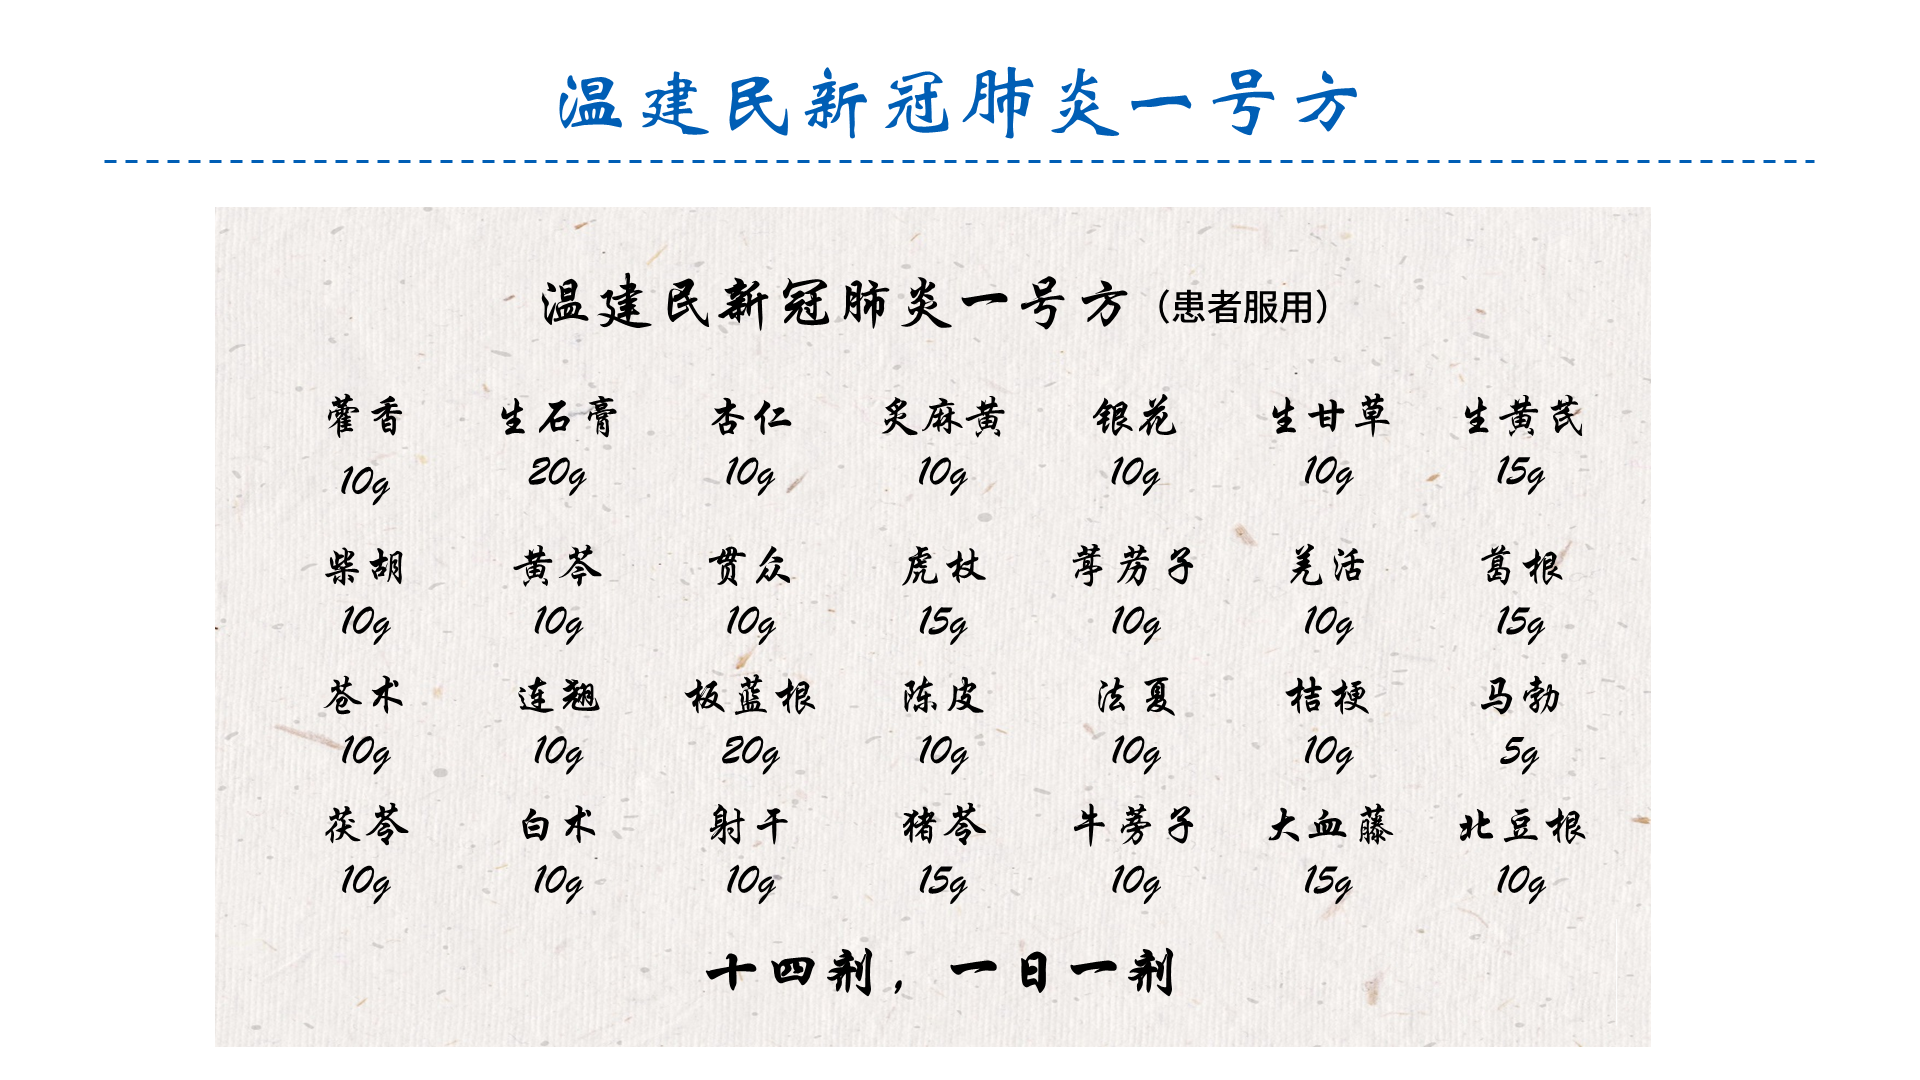 温建民新冠肺炎一号方
温建民新冠肺炎一号方（患者服用）
藿香 生石膏 杏仁 炙麻黄 银花 生甘草 生黄芪
10g 20g 10g 10g 10g 10g 15g
柴胡 黄芩 贯众 虎杖 葶苈子 羌活 葛根
10g 10g 10g 15g 10g 10g 15g
苍术 连翘 板蓝根 陈皮 法夏 桔梗 马勃
10g 10g 20g 10g 10g 10g 5g
茯苓 白术 射干 猪苓 牛蒡子 大血藤 北豆根
10g 10g 10g 15g 10g 15g 10g
十四剂，一日一剂